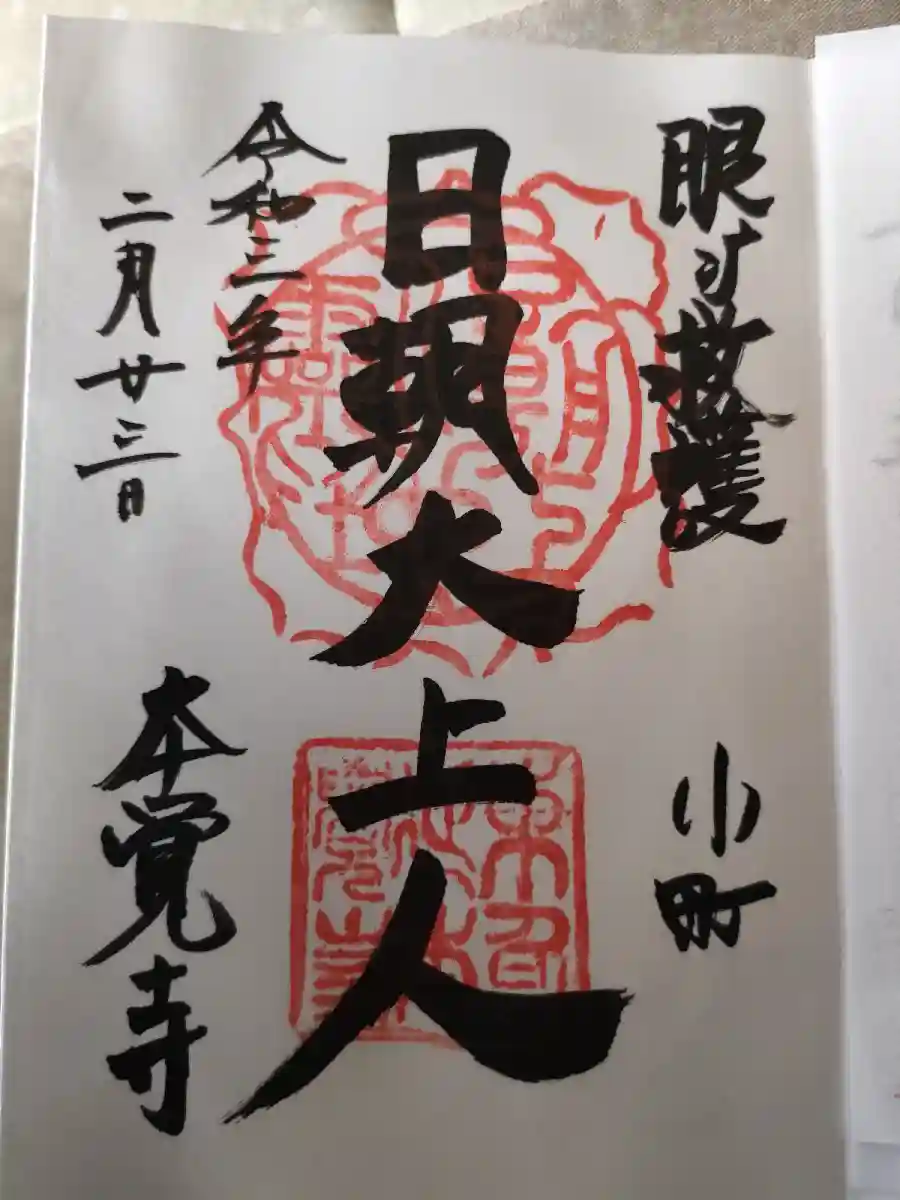 眼守救護
小町
日朝大上人
令和三年
二月廿三日
本覚寺